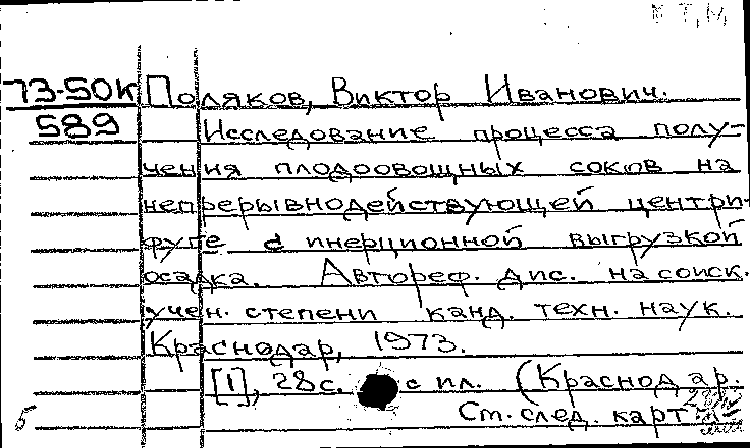 Т, М,
73-50К Поляков, Виктор Иванович.
589 Исследование процесса полу-
чения плодоовощных соков на
непрерывнодействующей центри-
фуге с инерционной выгрузкой
осадка. Автореф. дис. на соиск.
учен. степени канд. техн. наук.
Краснодар, 1973.
[1], 28с. с ил. (Краснодар.
5 Ст. след. карт